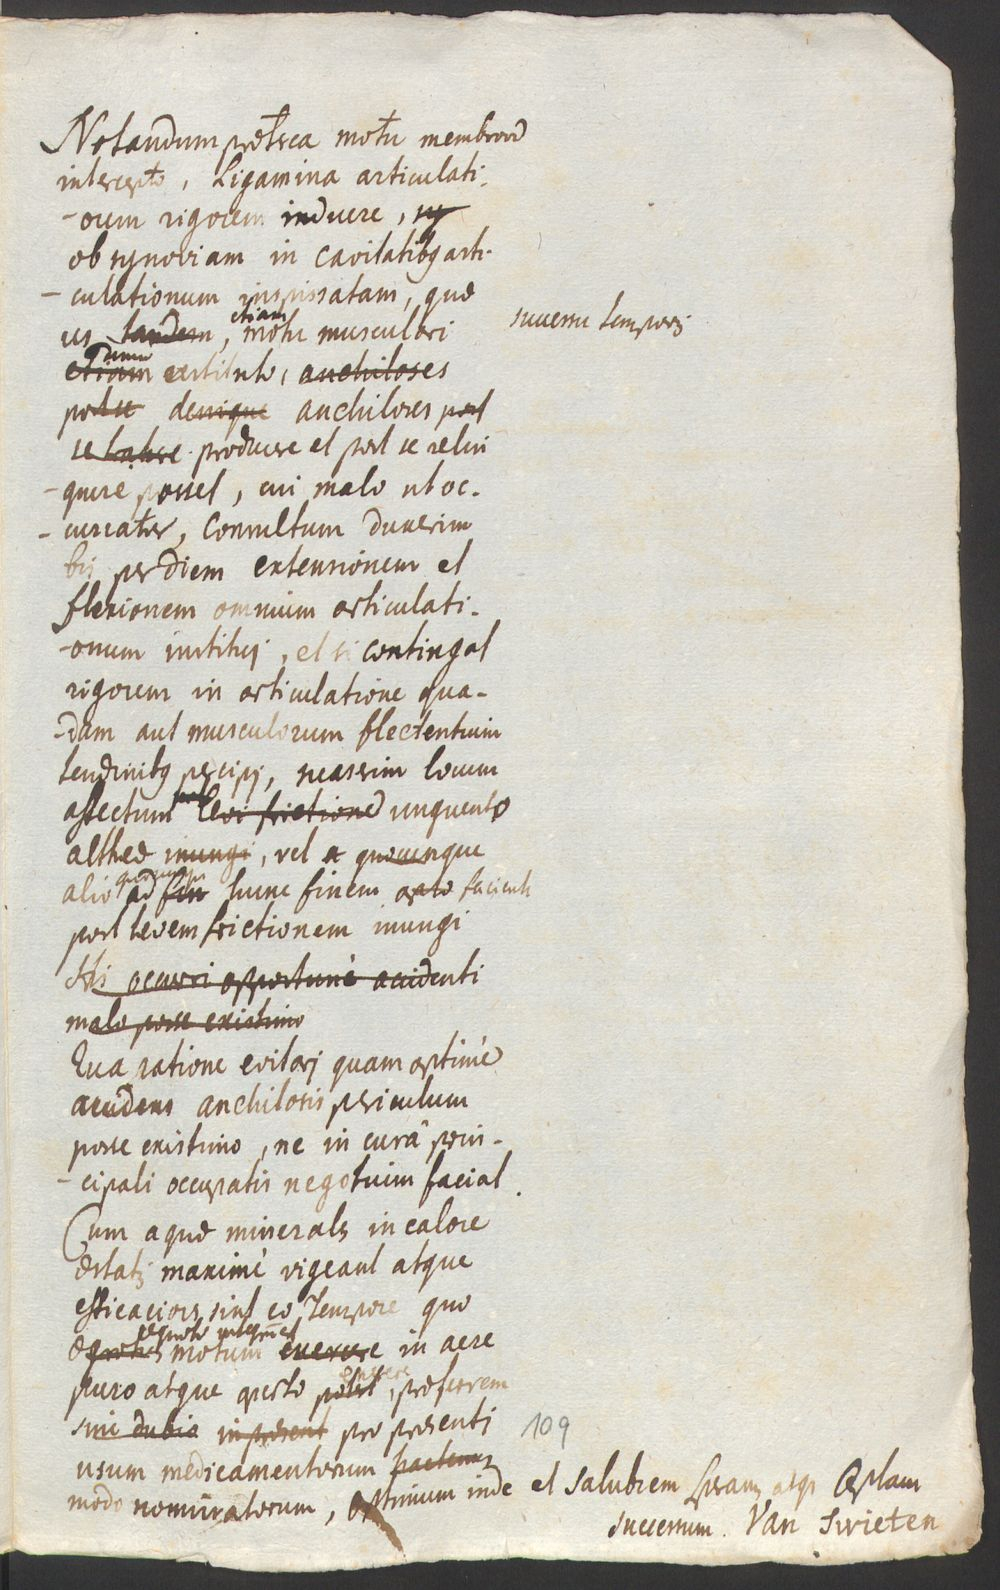 Notandum prætrea motu membrorū
intercepto, Ligamina articulati-
-onum rigorem induere, sy
ob synoviam in cavitatibq arti-
-culationum inspissatam, quæ
us tandem, etiam motu musculari
successu temporis
etiam dum restituto, anchiloses
posse denique anchiloses post
se trahere producere et post se relin
-quere posset, cui malo ut oc-
-curratur, Consultum duxerim
bis per diem extensionem et
flexionem omnium articulati-
-onum institui, et si contingat
rigorem in articulatione qua-
-dam aut musculorum flectentium
tendinibq percipi, suaserim locum
affectum post levi frictione unguento
altheæ inungi, vel a quocunque
alio quocunque ad fin hunc finem apto faciente
post levem frictionem inungi
occurri opportunè accidenti
malo posse existimo
Qua ratione evitari quam optimè
accidens anchilosis periculum
posse existimo, ne in curâ prin-
-cipali occupatis negotium facial.
Cum aquæ minerales in calore
æstatis maximè vigeant atque
efficaciores sint eo tempore quo
ægrotus ægroto motum exercere in aere
puro atque aperto potest, præferrem
sine dubio in præsent pro præsenti
109
usum medicamentorum hactenus
modo nominatorum, optimum inde et salubrem speans atqe Optam
successum. Van Swieten